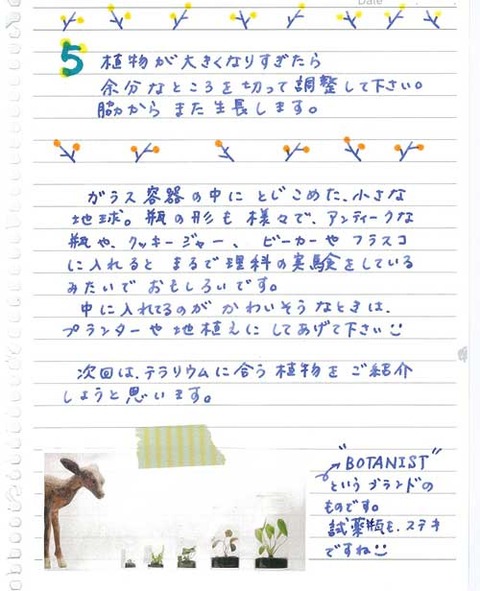 Date
5 植物が大きくなりすぎたら
余分なところを切って調整して下さい。
脇から また生長します。
ガラス容器の中に とじこめた、小さな
地球。瓶の形も様々で、アンティークな
瓶や、クッキージャー、ビーカーや フラスコ
に入れると まるで理科の実験をしている
みたいで おもしろいです。
中に入れてるのが かわいそうなときは、
プランターや地植えに してあげて下さい
次回は、テラリウムに合う植物をご紹介
しようと思います。
"BOTANIST"
というブランドの
ものです。
試薬瓶も、ステキ
ですね